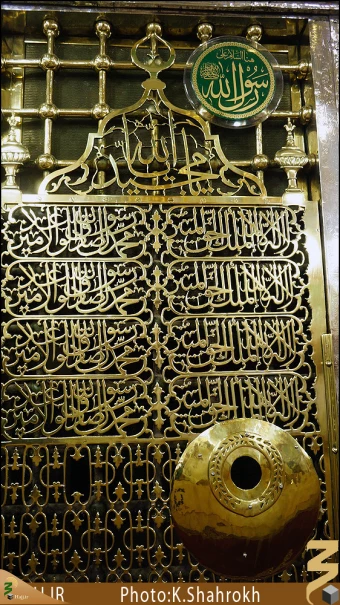 هنا السلام على
رسول الله
صلى الله عليه وسلم
الله
محمد
لا إله إلا الله الملك الحق المبين
محمد رسول الله صادق الوعد الأمين
لا إله إلا الله الملك الحق المبين
محمد رسول الله صادق الوعد الأمين
لا إله إلا الله الملك الحق المبين
محمد رسول الله صادق الوعد الأمين
لا إله إلا الله الملك الحق المبين
محمد رسول الله صادق الوعد الأمين
Photo:K.Shahrokh